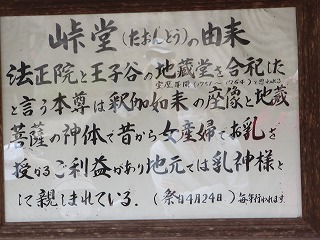 峠堂(たおんどう)の由来
法正院と王子谷の地蔵堂を合祀した
宝暦年間(1751~1764)と思われる
と言う本尊は釈伽如来の座像と地蔵
菩薩の神体で昔から女産婦でお乳を
授かるご利益があり地元では乳神様と
して親しまれている.(祭日4月24日)毎年行われます